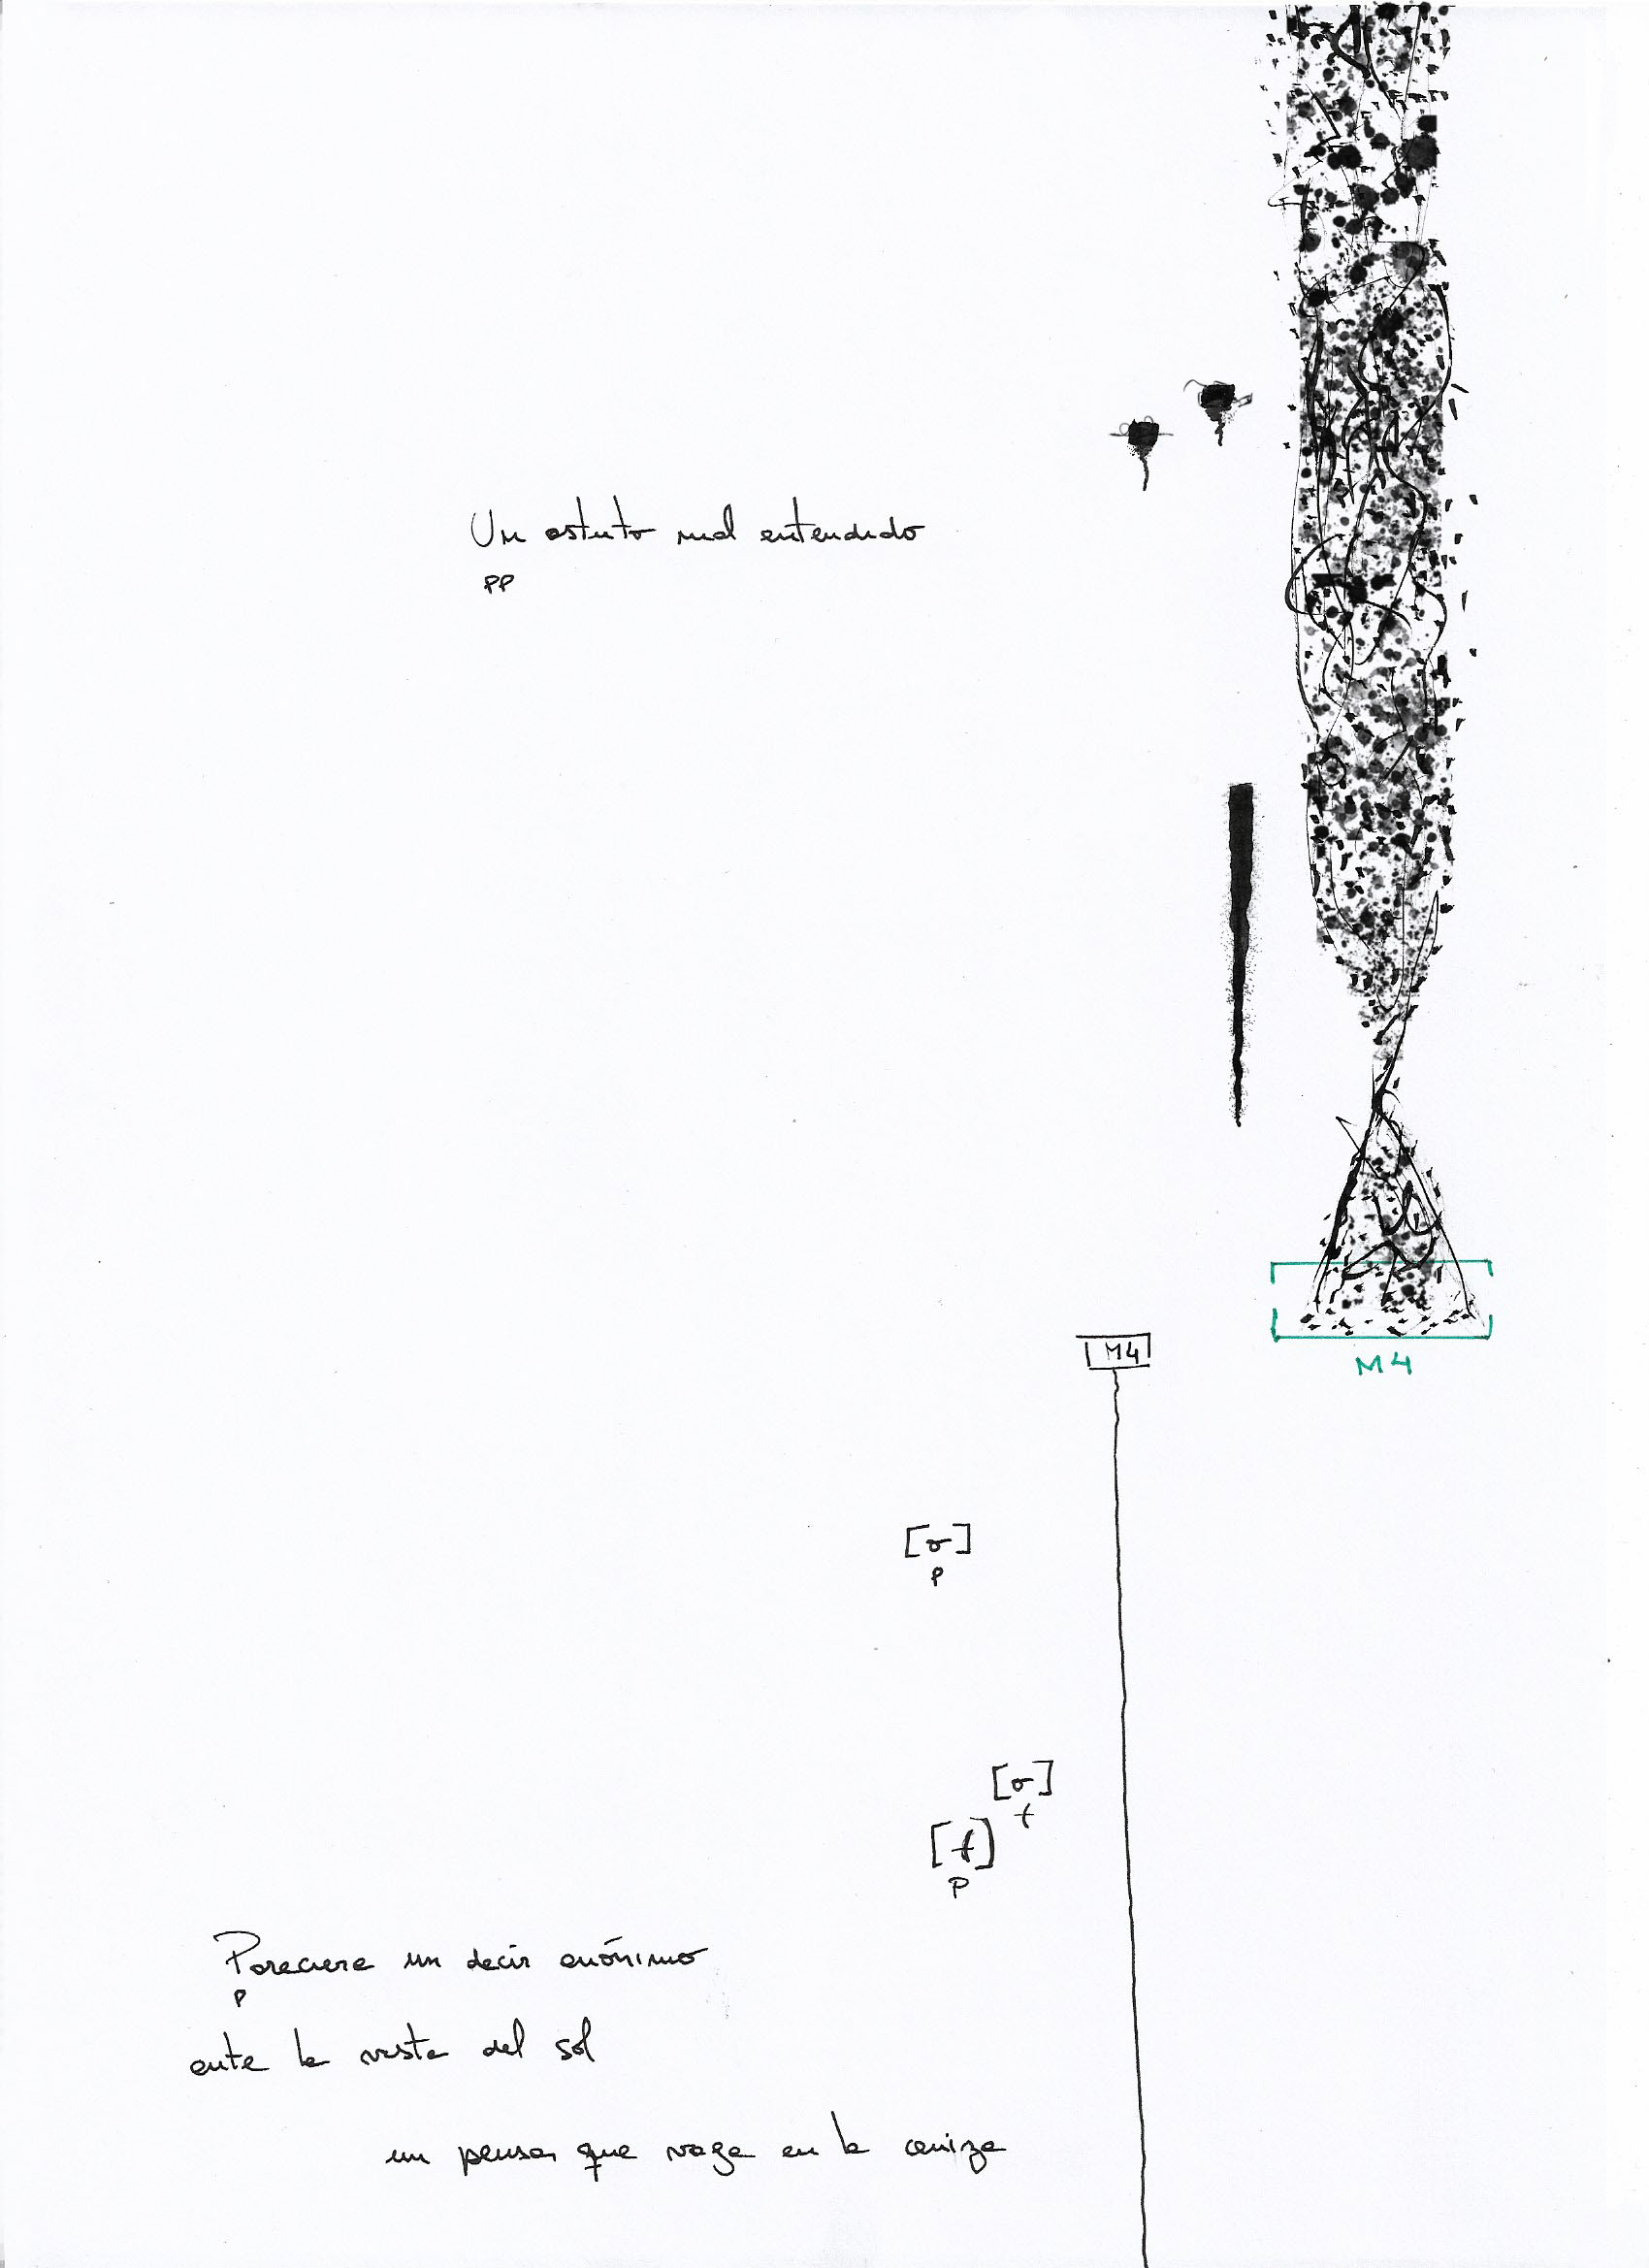 Un astuto mal entendido
PP
M4
M4
[o]
P
[o]
f
[f]
P
Pareciera un decir anónimo
P
ante la vista del sol
un pensar que vaga en la ceniza